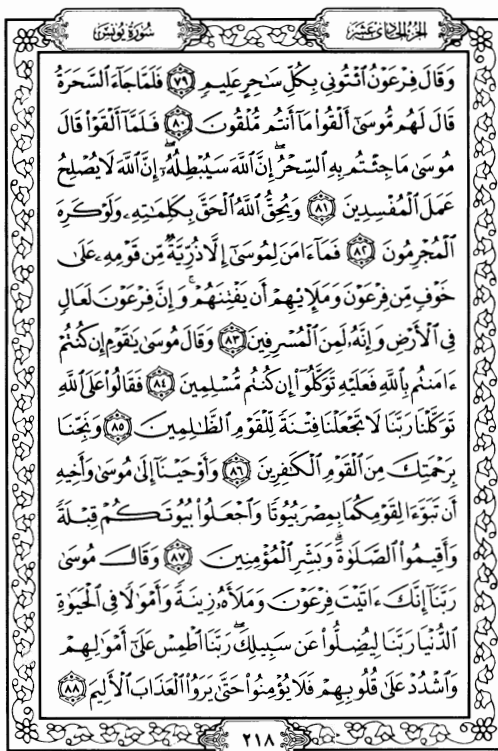 سُورَةُ يُونُسَ
الجُزْءُ الحَادِي عَشَرَ
وَقَالَ فِرْعَوْنُ ٱئْتُونِي بِكُلِّ سَٰحِرٍ عَلِيمٍ ٧٩ فَلَمَّا جَآءَ ٱلسَّحَرَةُ
قَالَ لَهُم مُّوسَىٰٓ أَلْقُوا۟ مَآ أَنتُم مُّلْقُونَ ٨٠ فَلَمَّآ أَلْقَوْا۟ قَالَ
مُوسَىٰ مَا جِئْتُم بِهِ ٱلسِّحْرُ ۖ إِنَّ ٱللَّهَ سَيُبْطِلُهُۥٓ ۖ إِنَّ ٱللَّهَ لَا يُصْلِحُ
عَمَلَ ٱلْمُفْسِدِينَ ٨١ وَيُحِقُّ ٱللَّهُ ٱلْحَقَّ بِكَلِمَٰتِهِۦ وَلَوْ كَرِهَ
ٱلْمُجْرِمُونَ ٨٢ فَمَآ ءَامَنَ لِمُوسَىٰٓ إِلَّا ذُرِّيَّةٌ مِّن قَوْمِهِۦ عَلَىٰ
خَوْفٍ مِّن فِرْعَوْنَ وَمَلَإِي۟هِمْ أَن يَفْتِنَهُمْ ۚ وَإِنَّ فِرْعَوْنَ لَعَالٍ
فِى ٱلْأَرْضِ وَإِنَّهُۥ لَمِنَ ٱلْمُسْرِفِينَ ٨٣ وَقَالَ مُوسَىٰ يَٰقَوْمِ إِن كُنتُمْ
ءَامَنتُم بِٱللَّهِ فَعَلَيْهِ تَوَكَّلُوٓا۟ إِن كُنتُم مُّسْلِمِينَ ٨٤ فَقَالُوا۟ عَلَى ٱللَّهِ
تَوَكَّلْنَا رَبَّنَا لَا تَجْعَلْنَا فِتْنَةً لِّلْقَوْمِ ٱلظَّٰلِمِينَ ٨٥ وَنَجِّنَا
بِرَحْمَتِكَ مِنَ ٱلْقَوْمِ ٱلْكَٰفِرِينَ ٨٦ وَأَوْحَيْنَآ إِلَىٰ مُوسَىٰ وَأَخِيهِ
أَن تَبَوَّءَا لِقَوْمِكُمَا بِمِصْرَ بُيُوتًا وَٱجْعَلُوا۟ بُيُوتَكُمْ قِبْلَةً
وَأَقِيمُوا۟ ٱلصَّلَوٰةَ ۗ وَبَشِّرِ ٱلْمُؤْمِنِينَ ٨٧ وَقَالَ مُوسَىٰ
رَبَّنَآ إِنَّكَ ءَاتَيْتَ فِرْعَوْنَ وَمَلَأَهُۥ زِينَةً وَأَمْوَٰلًا فِى ٱلْحَيَوٰةِ
ٱلدُّنْيَا رَبَّنَا لِيُضِلُّوا۟ عَن سَبِيلِكَ ۖ رَبَّنَا ٱطْمِسْ عَلَىٰٓ أَمْوَٰلِهِمْ
وَٱشْدُدْ عَلَىٰ قُلُوبِهِمْ فَلَا يُؤْمِنُوا۟ حَتَّىٰ يَرَوُا۟ ٱلْعَذَابَ ٱلْأَلِيمَ ٨٨
٢١٨